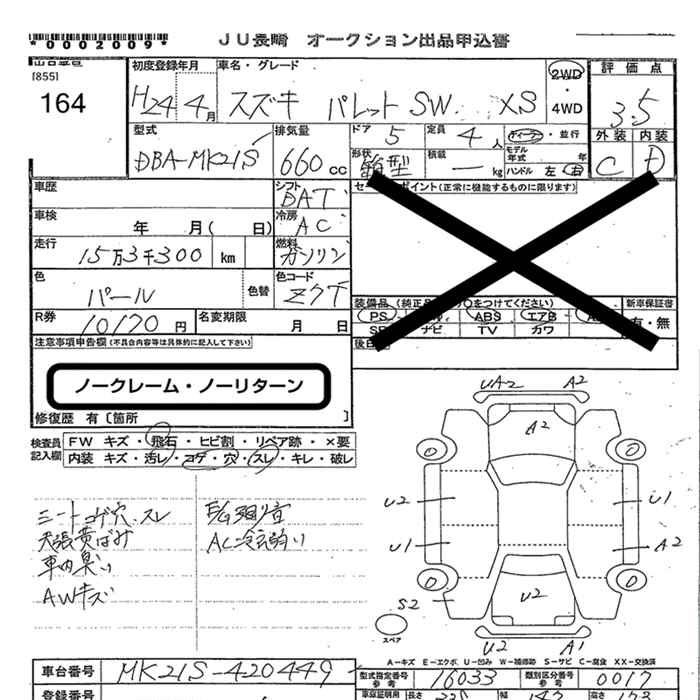 *0002009*
JU長崎 オークション出品申込書
[855]
164
初度登録年月
H24 4月
車名・グレード
スズキ パレットSW. XS
2WD
・
4WD
評価点
3.5
型式
DBA-MK21S
排気量
660cc
ドア 5
定員 4人
ディーラー・並行
形状
箱型
積載
― kg
モデル年式 年
ハンドル 左・右
外装 内装
C D
車歴
シフト
DAT
車検 年 月( 日)
冷房
AC
走行
15万3千300 km
燃料
ガソリン
色
パール
色替
色コード
ZQT
R券
10170円
名変期限 月 日
ポイント(正常に機能するものに限ります)
装備品
○をつけてください)
新車保証書
PS
ABS
エアB
有・無
ナビ
TV
カワ
注意事項申告欄(不具合内容等は具体的に記入して下さい)
ノークレーム・ノーリターン
修復歴 有〔箇所 〕
検査員記入欄
FW キズ・飛石・ヒビ割・リペア跡・×要
内装 キズ・汚レ・コゲ・穴・スレ・キレ・破レ
シートコゲ穴.スレ
天張黄ばみ
車内臭い
AWキズ
E/G廻り音
AC冷え弱い
UA2 A2
A2
U2 U1
U1 A2
S2 U2
U2 A1
スペア
A-キズ E-エクボ U-凹み W-補修跡 S-サビ C-腐食 XX-交換済
車台番号
MK21S-420449
型式指定番号
参考
16033
類別区分番号
参考
0017
登録番号